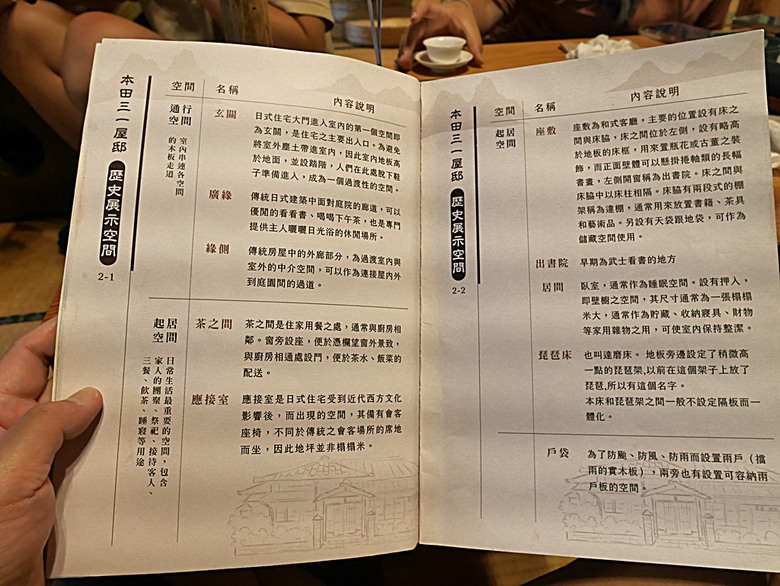 本田三一屋邸 歷史展示空間
2-1
空間 名稱 內容說明
通行空間
室內串連各空間的木板走道
玄關
日式住宅大門進入室內的第一個空間即
為玄關，是住宅之主要出入口。為避免
將室外塵土帶進室內，因此室內地板高
於地面，並設踏階，人們在此處脫下鞋
子準備進人，成為一個過渡性的空間。
廣緣
傳統日式建築中面對庭院的廊道，可以
優閒的看看書、喝喝下午茶，也是專門
提供主人曬曬日光浴的休閒場所。
緣側
傳統房屋中的外廊部分，為過渡室內與
室外的中介空間，可以作為連接屋內外
到庭園間的過道。
起居空間
日常生活最重要的空間，包含
家人的團聚、祭祀、接待客人、
三餐、飲茶、睡寢等用途
茶之間
茶之間是住家用餐之處，通常與廚房相
鄰。窗旁設座，便於憑欄望窗外景致，
與廚房相通處設門，便於茶水、飯菜的
配送。
應接室
應接室是日式住宅受到近代西方文化
影響後，而出現的空間，其備有會客
座椅，不同於傳統之會客場所的席地
而坐，因此地坪並非榻榻米。
本田三一屋邸 歷史展示空間
2-2
空間 名稱 內容說明
起居空間
座敷
座敷為和式客廳，主要的位置設有床之
間與床脇，床之間位於左側，設有略高
於地板的床框，用來置瓶花或古董之裝
飾，而正面壁體可以懸掛捲軸類的長幅
書畫，左側開窗稱為出書院。床之間與
床脇中以床柱相隔。床脇有兩段式的棚
架稱為違棚，通常用來放置書籍、茶具
和藝術品。另設有天袋跟地袋，可作為
儲藏空間使用。
出書院
早期為武士看書的地方
居間
臥室，通常作為睡眠空間。設有押入，
即壁櫥之空間，其尺寸通常為一張榻榻
米大，通常作為貯藏、收納寢具、財物
等家用雜物之用，可使室內保持整潔。
琵琶床
也叫達磨床。 地板旁邊設定了稍微高
一點的琵琶架，以前在這個架子上放了
琵琶,所以有這個名字。
本床和琵琶架之間一般不設定隔板而一
體化。
戶袋
為了防颱、防風、防雨而設置雨戶(擋
雨的實木板)，兩旁也有設置可容納雨
戶板的空間。